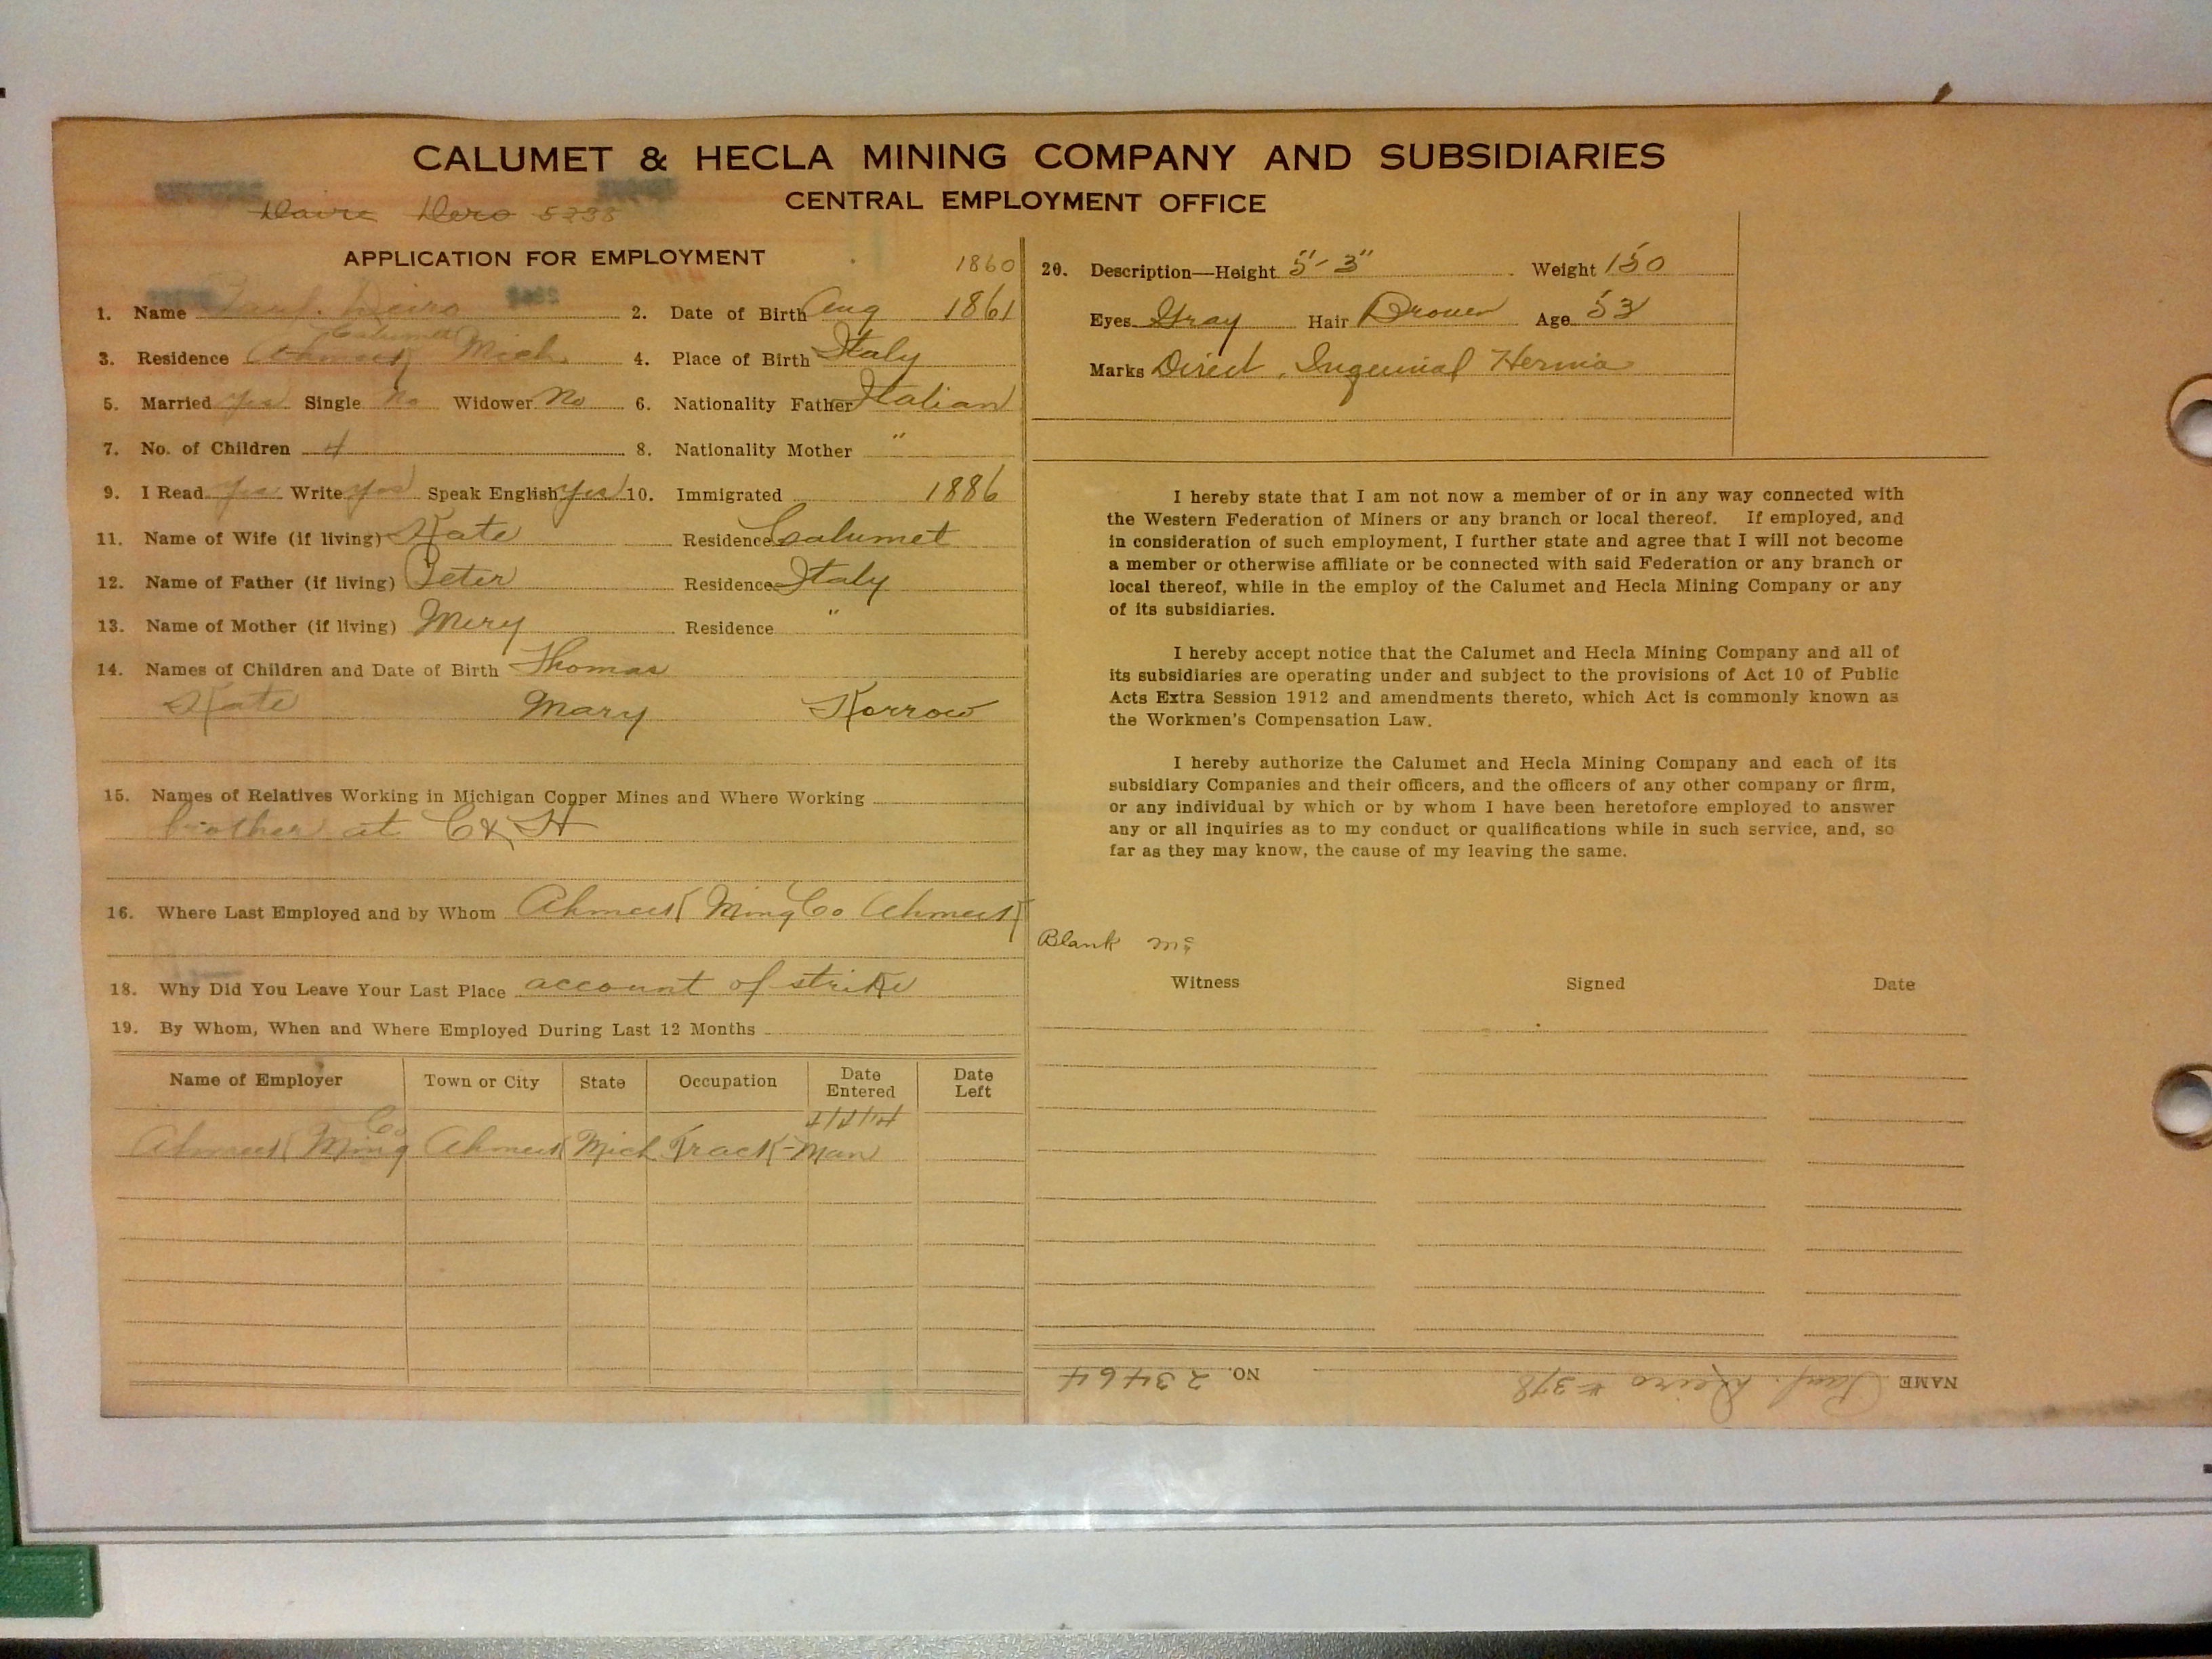 CALUMET & HECLA MINING COMPANY AND SUBSIDIARIES
CENTRAL EMPLOYMENT OFFICE
Dero 5238
APPLICATION FOR EMPLOYMENT
1860
1. Name Paul. Deiro 2. Date of Birth Aug 1861
Calumet
3. Residence Ahmeek Mich. 4. Place of Birth Italy
5. Married Yes Single No Widower No 6. Nationality Father Italian
7. No. of Children 4 8. Nationality Mother "
9. I Read Yes Write Yes Speak English Yes 10. Immigrated 1886
11. Name of Wife (if living) Kate Residence Calumet
12. Name of Father (if living) Peter Residence Italy
13. Name of Mother (if living) Mery Residence "
14. Names of Children and Date of Birth Thomas
Kate Mary Korrow
15. Names of Relatives Working in Michigan Copper Mines and Where Working
brother at C & H
16. Where Last Employed and by Whom Ahmeek Ming Co Ahmeek
18. Why Did You Leave Your Last Place account of strike
19. By Whom, When and Where Employed During Last 12 Months
Name of Employer Town or City State Occupation Date Entered Date Left
4/4/14
Ahmeek Ming Co Ahmeek Mich Track-Man
20. Description—Height 5'-3" Weight 150
Eyes Gray Hair Brown Age 53
Marks Direct, Inguinial Hernia
I hereby state that I am not now a member of or in any way connected with
the Western Federation of Miners or any branch or local thereof. If employed, and
in consideration of such employment, I further state and agree that I will not become
a member or otherwise affiliate or be connected with said Federation or any branch or
local thereof, while in the employ of the Calumet and Hecla Mining Company or any
of its subsidiaries.
I hereby accept notice that the Calumet and Hecla Mining Company and all of
its subsidiaries are operating under and subject to the provisions of Act 10 of Public
Acts Extra Session 1912 and amendments thereto, which Act is commonly known as
the Workmen's Compensation Law.
I hereby authorize the Calumet and Hecla Mining Company and each of its
subsidiary Companies and their officers, and the officers of any other company or firm,
or any individual by which or by whom I have been heretofore employed to answer
any or all inquiries as to my conduct or qualifications while in such service, and, so
far as they may know, the cause of my leaving the same.
Blank
Witness Signed Date
NAME Paul. Deiro #378 NO. 23464